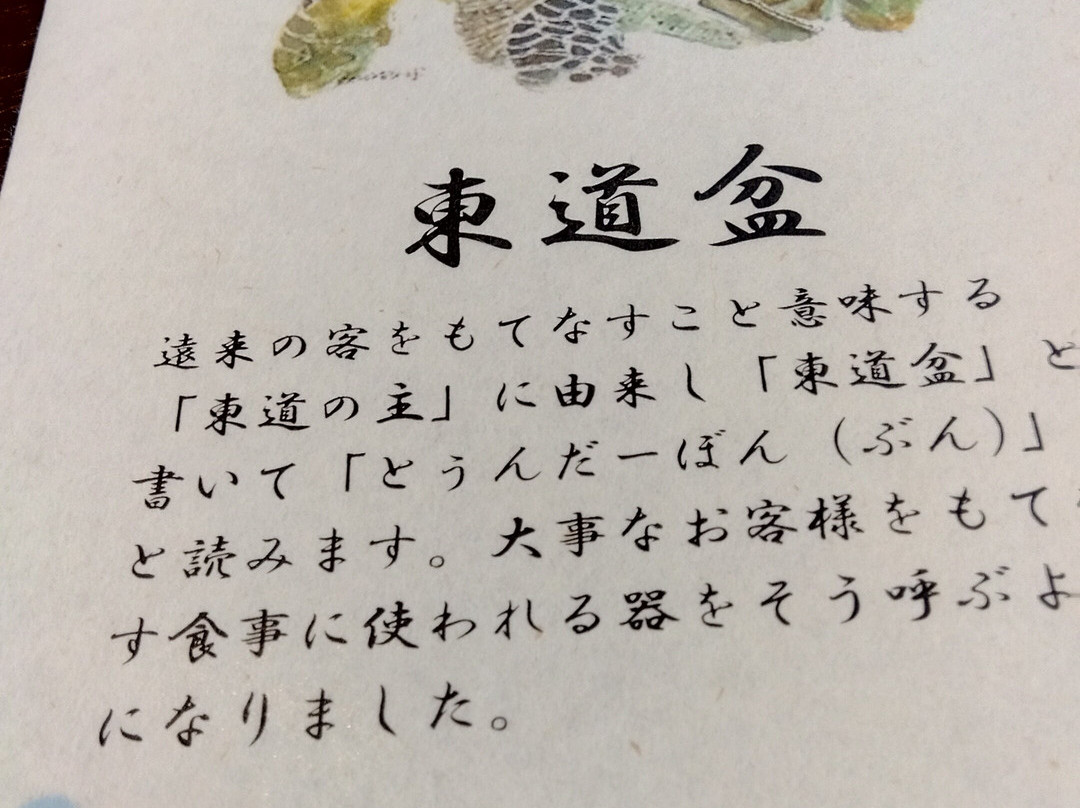 東道盆
遠来の客をもてなすこと意味する
「東道の主」に由来し「東道盆」と
書いて「とうんだーぼん（ぶん）」
と読みます。大事なお客様をもて
す食事に使われる器をそう呼ぶよ
になりました。